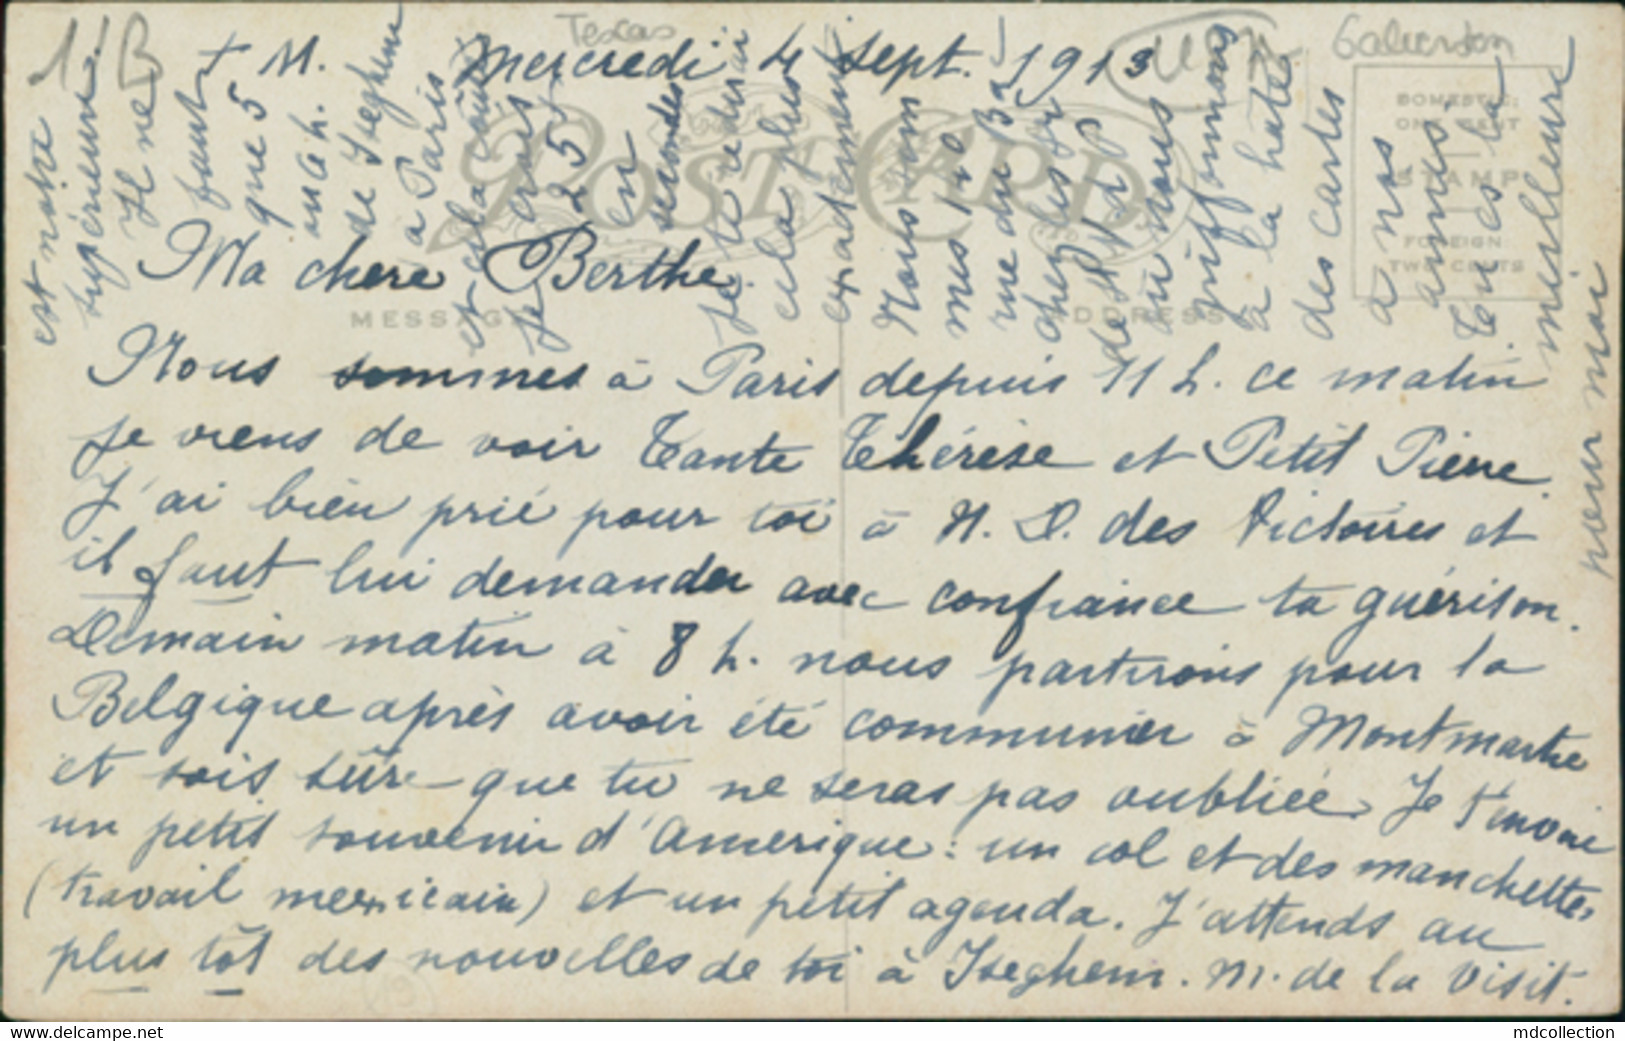 Texas
Galverston
+ M. Mercredi 4 sept. 1913
POST CARD
DOMESTIC:
ONE CENT
STAMP
FOREIGN:
TWO CENTS
MESSAGE
ADDRESS
Ma chere Berthe.
Nous sommes à Paris depuis 11 h. ce matin
je viens de voir Tante Thérèse et Petit Pierre.
J'ai bien prié pour toi à N. D. des Victoires et
il faut lui demander avec confiance ta guérison.
Demain matin à 8 h. nous partirons pour la
Belgique après avoir été communier à Montmartre
et sois sûre que tu ne seras pas oubliée. Je t'envoie
un petit souvenir d'Amerique : un col et des manchettes
(travail mexicain) et un petit agenda. J'attends au
plus tôt des nouvelles de toi à Iseghem. M. de la Visit.
est notre
supérieure.
Il ne
faut
que 5
ou 6 h.
de Iseghem
à Paris
et cela
je crois
25
en
secondes
Je te
cela plus
exactement
Nous
rue du Bac
chez les
de St V. de P
où nous
griffonnons
à la hâte
des cartes
à nos
amies
Tu es la
meilleure
pour moi
mdcollection